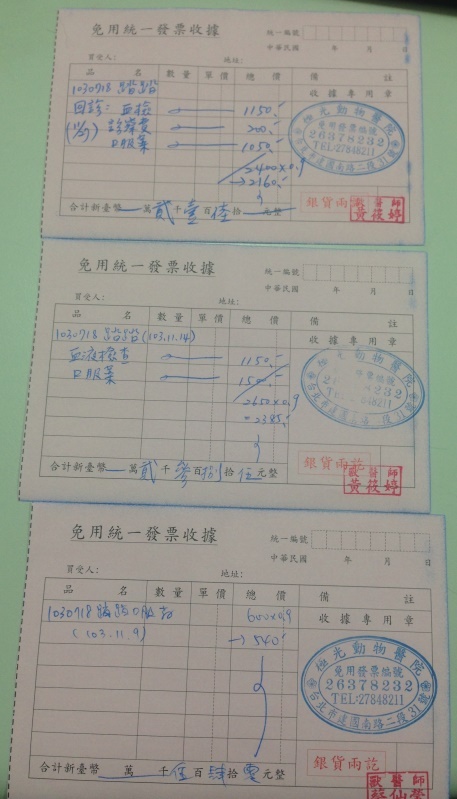 免用統一發票收據
統一編號
中華民國 年 月 日
買受人： 地址：
品 名 數量 單價 總價 備 註
1030718 蹓蹓
收據專用章
回診：血檢 1150.-
(11/7) 診療費 200.-
口服藥 1050.-
2400x0.9
→2160.-
極光動物醫院
免用發票編號
26378232
TEL:27848211
台北市建國南路二段31號
銀貨兩訖
獸醫師
黃筱婷
合計新臺幣 萬貳千壹百陸拾 元整
免用統一發票收據
統一編號
中華民國 年 月 日
買受人： 地址：
品 名 數量 單價 總價 備 註
1030718 (103.11.14)
收據專用章
血液檢查 1150.-
口服藥
2650x0.9
=2385.-
銀貨兩訖
獸醫師
黃筱婷
合計新臺幣 萬貳千參百捌拾伍元整
免用統一發票收據
統一編號
中華民國 年 月 日
買受人： 地址：
品 名 數量 單價 總價 備 註
1030718 口服藥 600x0.9
收據專用章
(103.11.9) →540.-
極光動物醫院
免用發票編號
26378232
TEL:27848211
台北市建國南路二段31號
銀貨兩訖
獸醫師
合計新臺幣 萬 千伍百肆拾零元整